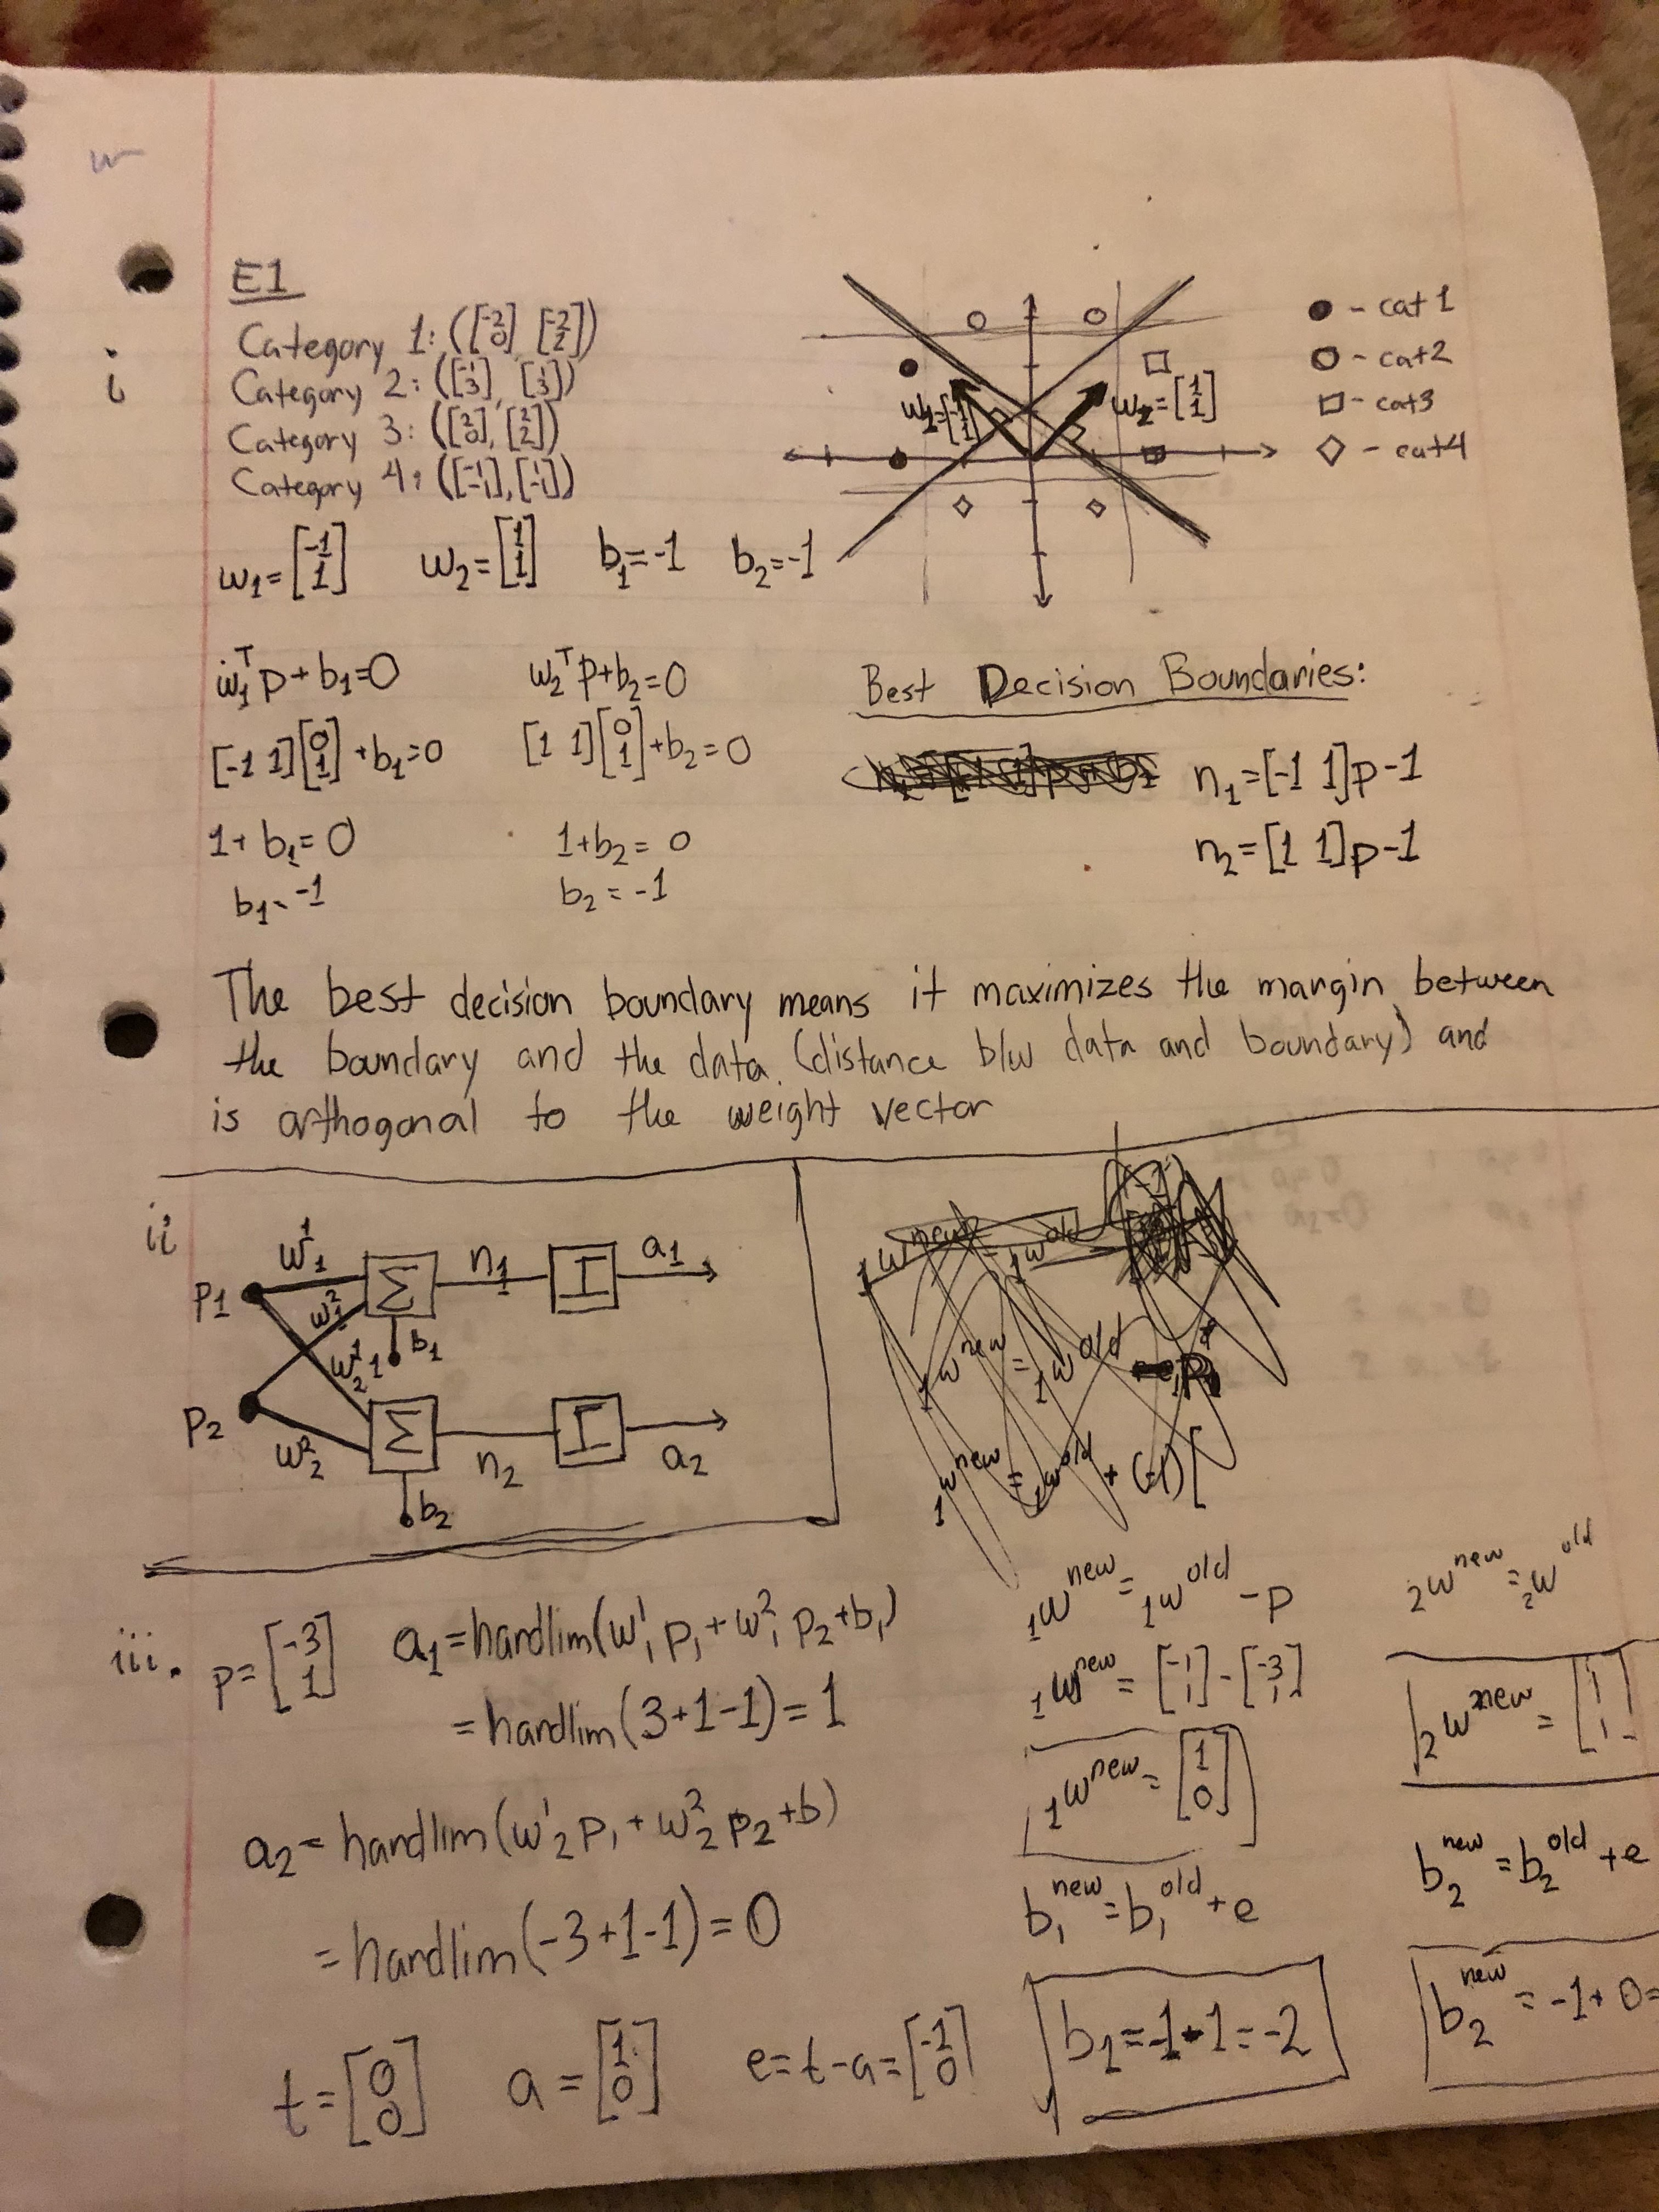 w
E1
i
Category 1: ([-2 0] [-2 2])
Category 2: ([-1 3], [1 3])
Category 3: ([2 0], [2 2])
Category 4: ([-1 -1], [1 -1])
● - cat 1
○ - cat2
□ - cat3
◇ - cat4
w1=[-1 1]
w2=[1 1]
w1=[-1 1] w2=[1 1] b1=-1 b2=-1
w1ᵀp+b1=0 w2ᵀp+b2=0
[-1 1][0 1]+b1=0 [1 1][0 1]+b2=0
1+b1=0 1+b2=0
b1=-1 b2=-1
Best Decision Boundaries:
n1=[-1 1]p-1
n2=[1 1]p-1
The best decision boundary means it maximizes the margin between
the boundary and the data. (distance b/w data and boundary) and
is orthogonal to the weight vector
ii
p1 w₁¹ Σ n1 a1
w₁² w₂¹ 1 b1
p2 w₂² Σ n2 a2
b2
1wⁿᵉʷ = 1wᵒˡᵈ
1wⁿᵉʷ = 1wᵒˡᵈ
1wⁿᵉʷ = 1wᵒˡᵈ + (-1)[
iii. p=[-3 1] a1=hardlim(w₁¹p1+w₁²p2+b1)
=hardlim(3+1-1)=1
a2=hardlim(w₂¹p1+w₂²p2+b)
=hardlim(-3+1-1)=0
t=[0 0] a=[1 0] e=t-a=[-1 0]
1wⁿᵉʷ=1wᵒˡᵈ-p
1wⁿᵉʷ=[-1 1]-[-3 1]
1wⁿᵉʷ=[1 0]
b1ⁿᵉʷ=b1ᵒˡᵈ+e
b1=-1-1=-2
2wⁿᵉʷ=2wᵒˡᵈ
2wⁿᵉʷ=[1 1]
b2ⁿᵉʷ=b2ᵒˡᵈ+e
b2ⁿᵉʷ=-1+0=